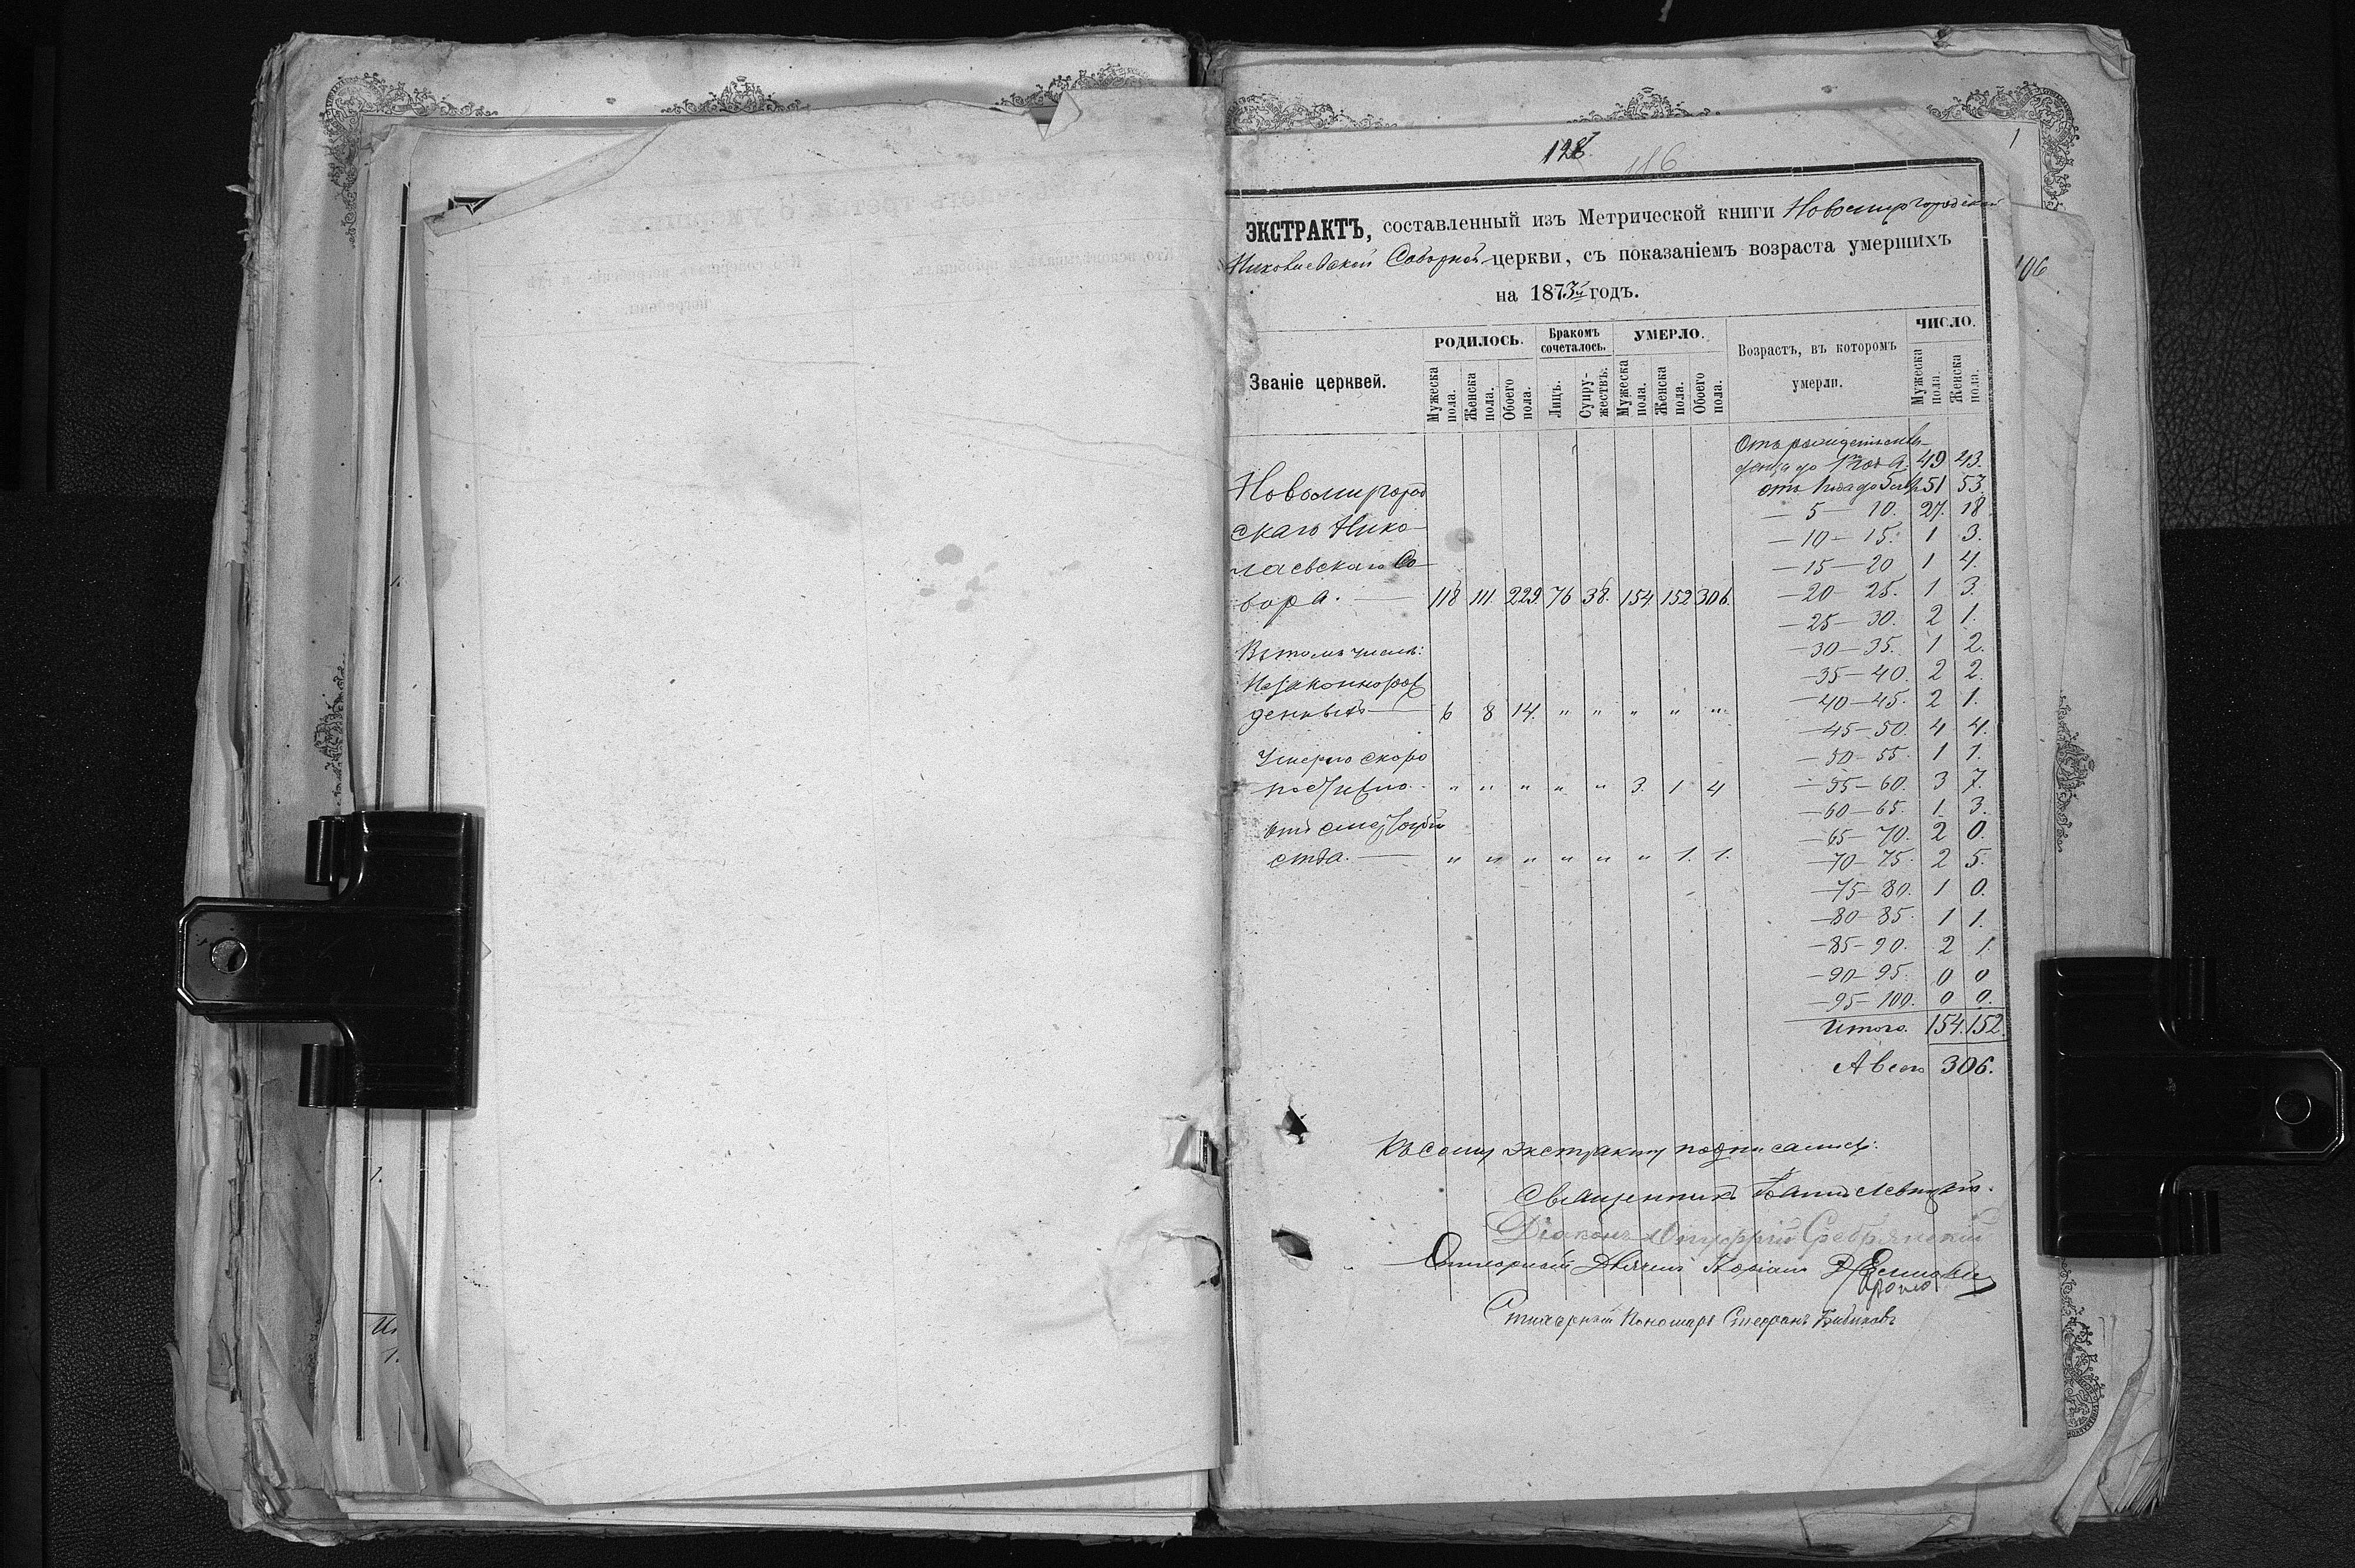 128.
116
1
106
ЭКСТРАКТЪ, составленный изъ Метрической книги Новомиргородской
Николаевской Соборной церкви, съ показаніемъ возраста умершихъ
на 1873й годъ.
Званіе церквей.
РОДИЛОСЬ.
Мужеска пола.
Женска пола.
Обоего пола.
Бракомъ сочеталось.
Лицъ.
Супружествъ.
УМЕРЛО.
Мужеска пола.
Женска пола.
Обоего пола.
Возрастъ, въ которомъ умерли.
ЧИСЛО.
Мужеска пола.
Женска пола.
Новомиргород
скаго Нико-
лаевскаго Со-
бора. — 118 111. 229. 76 38. 154. 152 306.
Въ томъ числѣ:
Незаконнорож
денныхъ — 6 8 14. " " " " "
Умерло скоро
постижно. " " " " " 3. 1 4
отъ
ства. — " " " " " " 1. 1.
Отъ
до 1го года. 49 43.
отъ 1 года до 5 51 53.
— 5 — 10. 27. 18
— 10 — 15. 1 3.
— 15 — 20 1 4.
— 20 — 25. 1 3.
— 25 — 30. 2 1.
— 30 — 35. 1 2.
— 35 — 40. 2 2.
— 40 — 45. 2 1.
— 45 — 50. 4 4.
— 50 — 55. 1 1.
— 55 — 60. 3 7.
— 60 — 65. 1 3.
— 65 — 70. 2 0.
— 70 — 75. 2 5.
— 75 — 80. 1 0.
— 80 — 85. 1 1.
— 85 — 90. 2 1.
— 90 — 95. 0 0
— 95 — 100. 0 0.
Итого. 154. 152.
А всего 306.
Къ сему экстракту подписались:
Священникъ Левицкій.
Діаконъ Онуфрій Сребрянскій
Дьячекъ
Стихарный Пономарь Стефанъ Бибиковъ